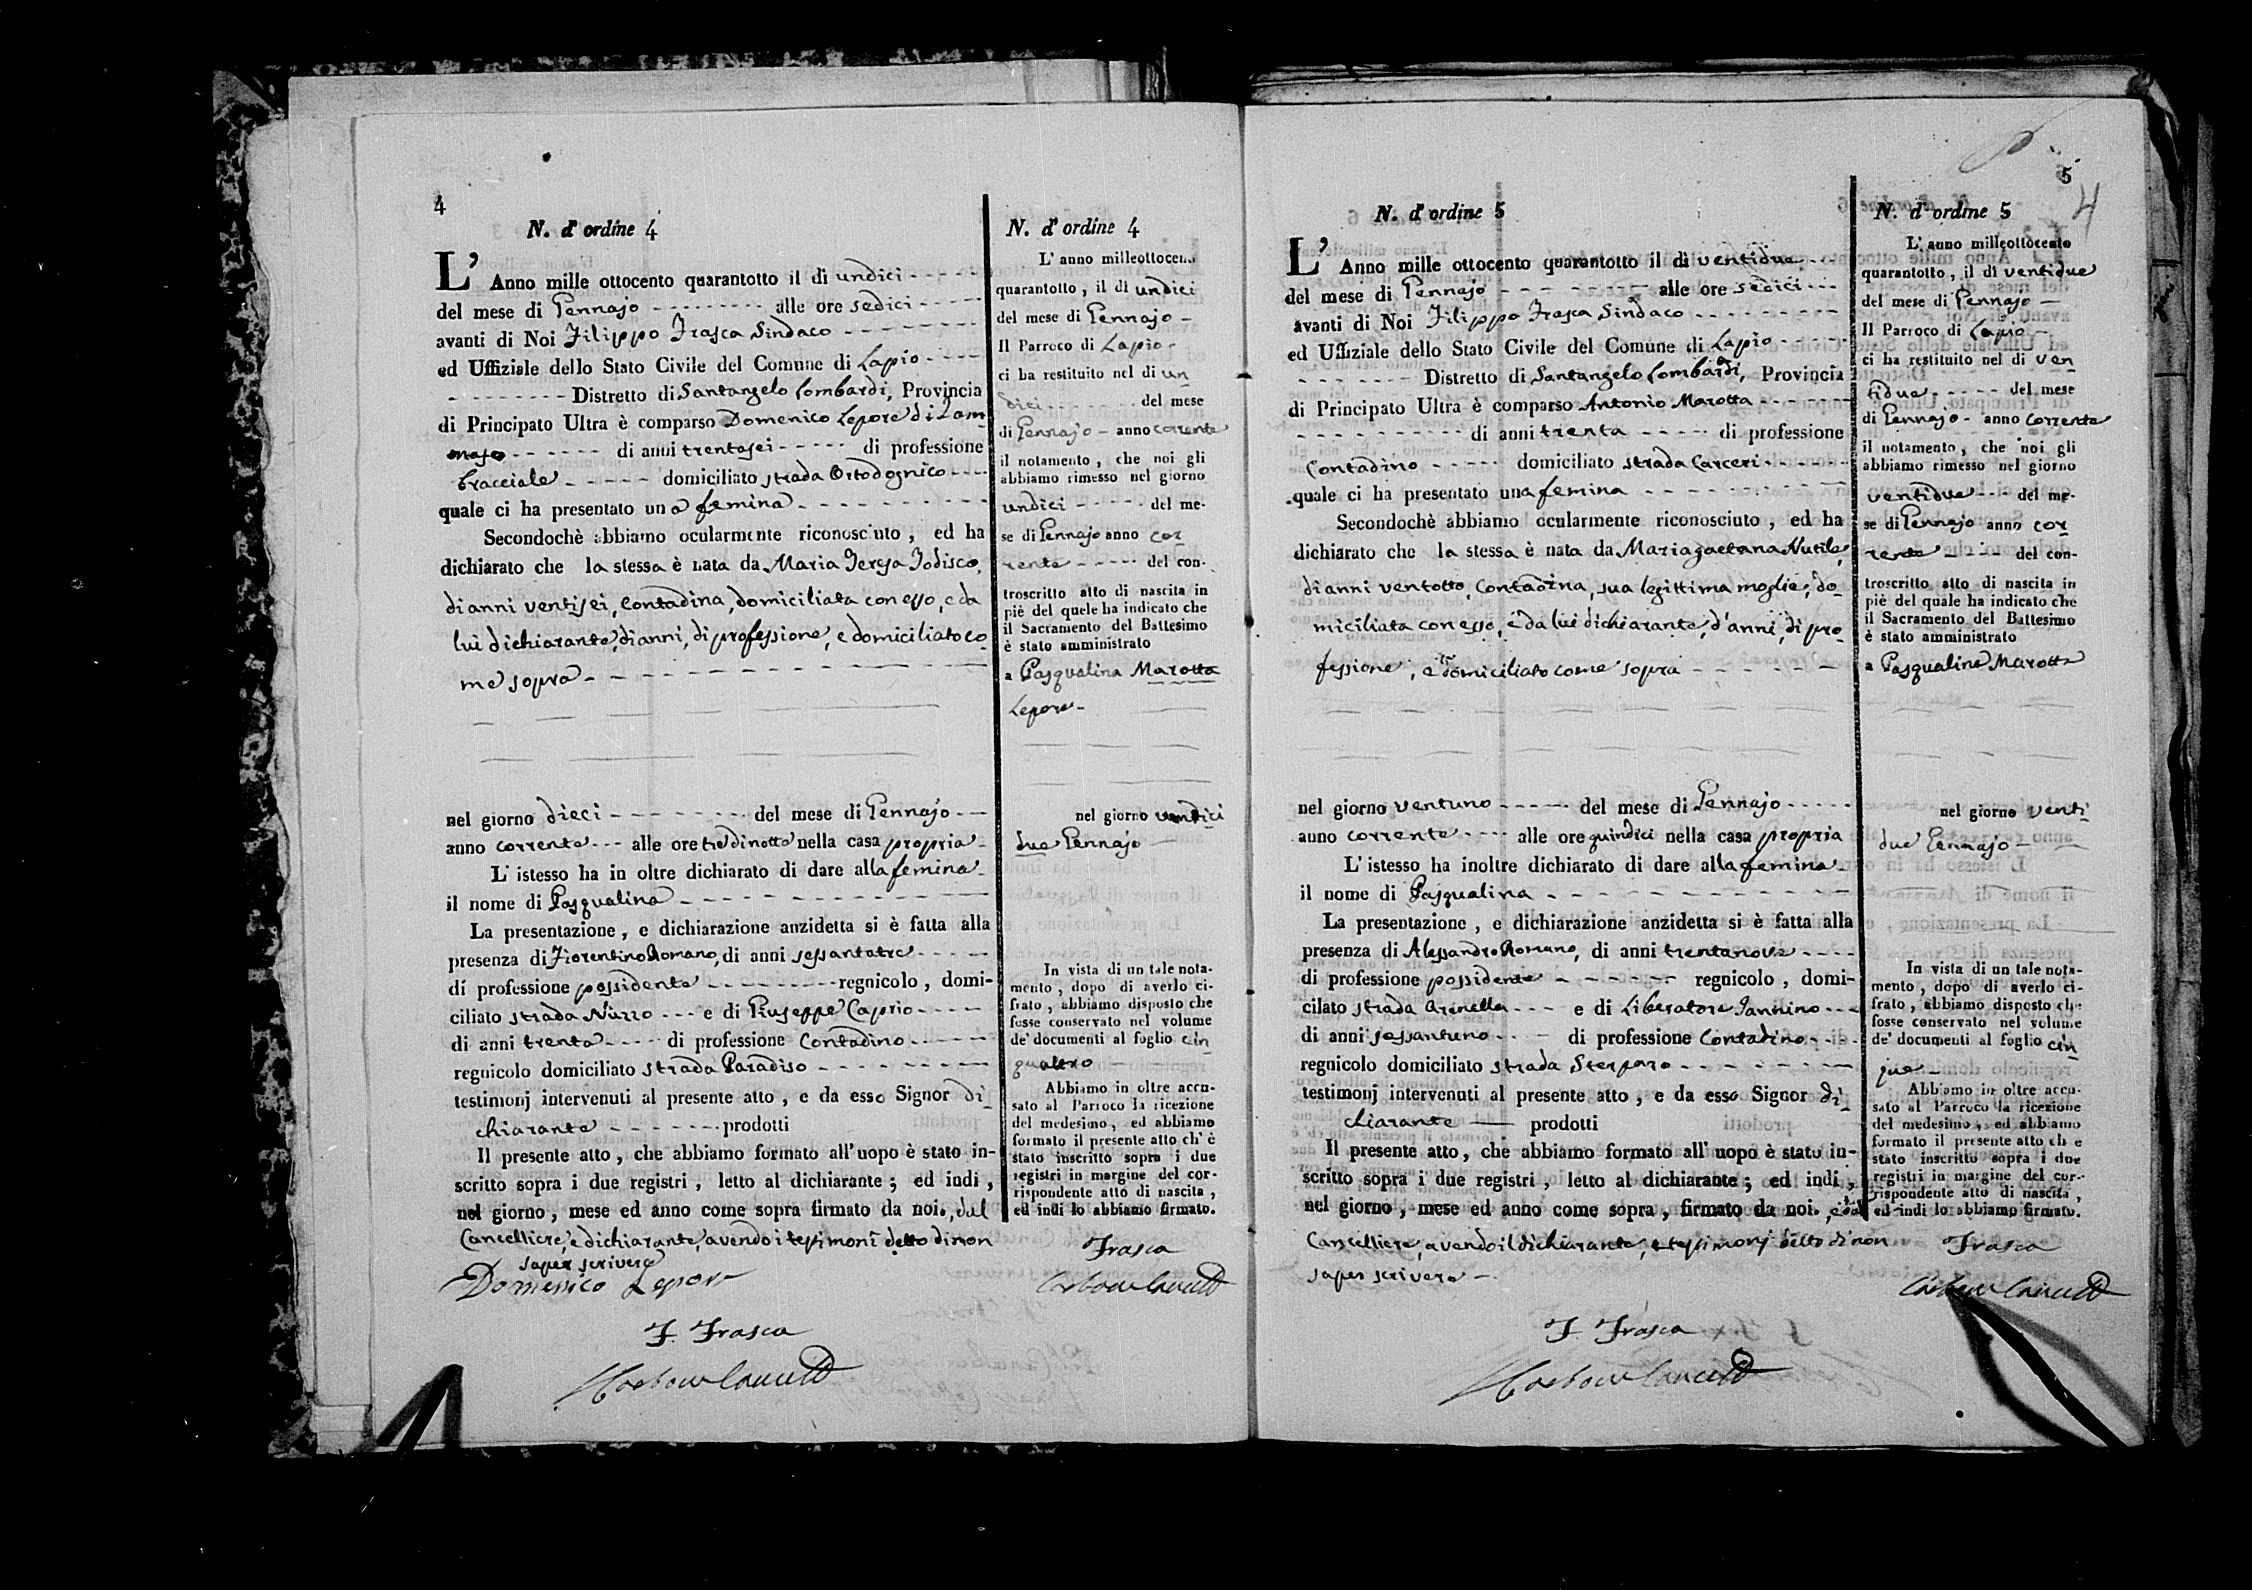 4
N. d' ordine 4
L' Anno mille ottocento quarantotto il dì undici
del mese di Gennajo alle ore sedici
avanti di Noi Filippo Frasca Sindaco
ed Uffiziale dello Stato Civile del Comune di Lapio
Distretto di Santangelo Lombardi, Provincia
di Principato Ultra è comparso Domenico Lepore di Tom
maso di anni trentasei di professione
bracciale domiciliato strada Ortodognico
quale ci ha presentato una femina
Secondochè abbiamo ocularmente riconosciuto, ed ha
dichiarato che la stessa è nata da Maria Teresa Jodisco,
di anni ventisei, contadina, domiciliata con esso, e da
lui dichiarante, di anni, di professione, e domiciliato co
me sopra
nel giorno dieci del mese di Gennajo
anno corrente alle ore diciotto nella casa propria
L' istesso ha in oltre dichiarato di dare alla femina
il nome di Pasqualina
La presentazione, e dichiarazione anzidetta si è fatta alla
presenza di Fiorentino Romano, di anni sessantatre
di professione possidente regnicolo, domi-
ciliato strada Nuzzo e di Giuseppe Caprio
di anni trenta di professione Contadino
regnicolo domiciliato strada Paradiso
testimonj intervenuti al presente atto, e da esso Signor di
chiarante prodotti
Il presente atto, che abbiamo formato all' uopo è stato in-
scritto sopra i due registri, letto al dichiarante; ed indi,
nel giorno, mese ed anno come sopra firmato da noi, dal
Cancelliere, e dichiarante, avendo i testimoni detto di non
saper scrivere
Domenico Lepore
F. Frasca
N. d' ordine 4
L' anno milleottocento
quarantotto, il dì undici
del mese di Gennajo
Il Parroco di Lapio
ci ha restituito nel dì un
dici del mese
di Gennajo anno corrente
il notamento, che noi gli
abbiamo rimesso nel giorno
undici del me-
se di Gennajo anno cor
rente del con-
troscritto atto di nascita in
piè del quele ha indicato che
il Sacramento del Battesimo
è stato amministrato
a Pasqualina Marotta
Lepore
nel giorno undici
due Gennajo
In vista di un tale nota-
mento, dopo di averlo ci-
frato, abbiamo disposto che
fosse conservato nel volume
de' documenti al foglio cin
quattro
Abbiamo in oltre accu-
sato al Parroco la ricezione
del medesimo, ed abbiamo
formato il presente atto ch' è
stato inscritto sopra i due
registri in margine del cor-
rispondente atto di nascita,
ed indi lo abbiamo firmato.
Frasca
5
4
N. d' ordine 5
L' Anno mille ottocento quarantotto il dì ventidue
del mese di Gennajo alle ore sedici
avanti di Noi Filippo Frasca Sindaco
ed Uffiziale dello Stato Civile del Comune di Lapio
Distretto di Santangelo Lombardi, Provincia
di Principato Ultra è comparso Antonio Marotta
di anni trenta di professione
Contadino domiciliato strada Carceri
quale ci ha presentato una femina
Secondochè abbiamo ocularmente riconosciuto, ed ha
dichiarato che la stessa è nata da Mariagaetana Nutile,
di anni ventotto, Contadina, sua legittima moglie, do
miciliata con esso, e da lui dichiarante, d'anni, di pro
fessione, e domiciliato come sopra
nel giorno ventuno del mese di Gennajo
anno corrente alle ore quindici nella casa propria
L' istesso ha inoltre dichiarato di dare alla femina
il nome di Pasqualina
La presentazione, e dichiarazione anzidetta si è fatta alla
presenza di Alessandro Romano, di anni trentanove
di professione possidente regnicolo, domi-
cilato strada Arenella e di Liberatore Jannino
di anni sessantuno di professione Contadino
regnicolo domiciliato strada Sterparo
testimonj intervenuti al presente atto, e da esso Signor di
chiarante prodotti
Il presente atto, che abbiamo formato all' uopo è stato in-
scritto sopra i due registri, letto al dichiarante; ed indi,
nel giorno, mese ed anno come sopra, firmato da noi, e dal
Cancelliere, avendo il dichiarante, e testimonj detto di non
saper scrivere
F. Frasca
N. d' ordine 5
L' anno milleottocento
quarantotto, il dì ventidue
del mese di Gennajo
Il Parroco di Lapio
ci ha restituito nel dì ven
tidue del mese
di Gennajo anno corrente
il notamento, che noi gli
abbiamo rimesso nel giorno
ventidue del me-
se di Gennajo anno cor
rente del con-
troscritto atto di nascita in
piè del quale ha indicato che
il Sacramento del Battesimo
è stato amministrato
a Pasqualina Marotta
nel giorno venti
due Gennajo
In vista di un tale nota-
mento, dopo di averlo ci-
frato, abbiamo disposto che
fosse conservato nel volume
de' documenti al foglio cin
que
Abbiamo in oltre accu-
sato al Parroco la ricezione
del medesimo, ed abbiamo
formato il presente atto ch e
stato inscritto sopra i due
registri in margine del cor-
rispondente atto di nascita,
ed indi lo abbiamo firmato.
Frasca